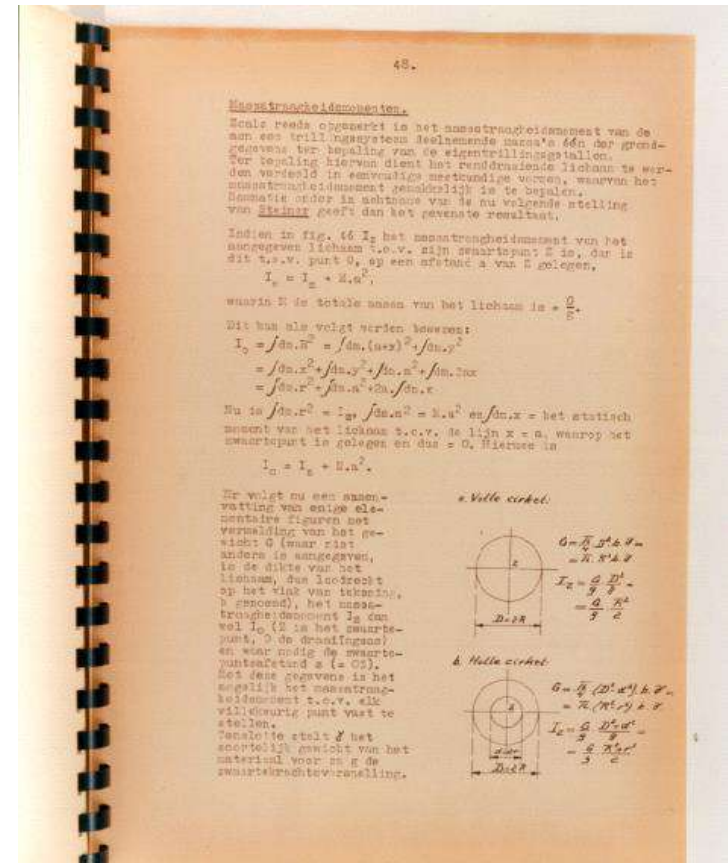 48.
Massatraagheidsmomenten.
Zoals reeds opgemerkt is het massatraagheidsmoment van de
aan een trillingssysteem deelnemende massa's één der grond-
gegevens ter bepaling van de eigentrillingsgetallen.
Ter bepaling hiervan dient het ronddraaiende lichaam te wor-
den verdeeld in eenvoudige meetkundige vormen, waarvan het
massatraagheidsmoment gemakkelijk is te bepalen.
Sommatie onder in achtname van de nu volgende stelling
van Steiner geeft dan het gewenste resultaat.
Indien in fig. 46 I_z het massatraagheidsmoment van het
aangegeven lichaam t.o.v. zijn zwaartepunt Z is, dan is
dit t.o.v. punt O, op een afstand a van Z gelegen,
I_o = I_z + M.a²,
waarin M de totale massa van het lichaam is = G/g.
Dit kan als volgt worden bewezen:
I_o = ∫dm.R² = ∫dm.(a+x)² + ∫dm.y²
= ∫dm.x² + ∫dm.y² + ∫dm.a² + ∫dm.2ax
= ∫dm.r² + ∫dm.a² + 2a.∫dm.x
Nu is ∫dm.r² = I_z, ∫dm.a² = M.a² en ∫dm.x = het statisch
moment van het lichaam t.o.v. de lijn x = a, waarop het
zwaartepunt is gelegen en dus = 0. Hiermee is
I_o = I_z + M.a².
Er volgt nu een samen-
vatting van enige ele-
mentaire figuren met
vermelding van het ge-
wicht G (waar niet
anders is aangegeven,
is de dikte van het
lichaam, dus loodrecht
op het vlak van tekening,
b genoemd), het massa-
traagheidsmoment I_z dan
wel I_o (Z is het zwaarte-
punt, O de draaiingsas)
en waar nodig de zwaarte-
puntsafstand a (= OZ).
Met deze gegevens is het
mogelijk het massatraag-
heidsmoment t.o.v. elk
willekeurig punt vast te
stellen.
Tenslotte stelt γ het
soortelijk gewicht van het
materiaal voor en g de
zwaartekrachtsversnelling.
a. Volle cirkel:
z
D=2R
G = π/4 . D². b. γ =
= π. R². b. γ
I_z = G/g D²/8 =
= G/g R²/2
b. Holle cirkel:
z
d=2r
D=2R
G = π/4 (D²-d²). b. γ =
= π. (R²-r²). b. γ
I_z = G/g D²+d²/8 =
= G/g R²+r²/2